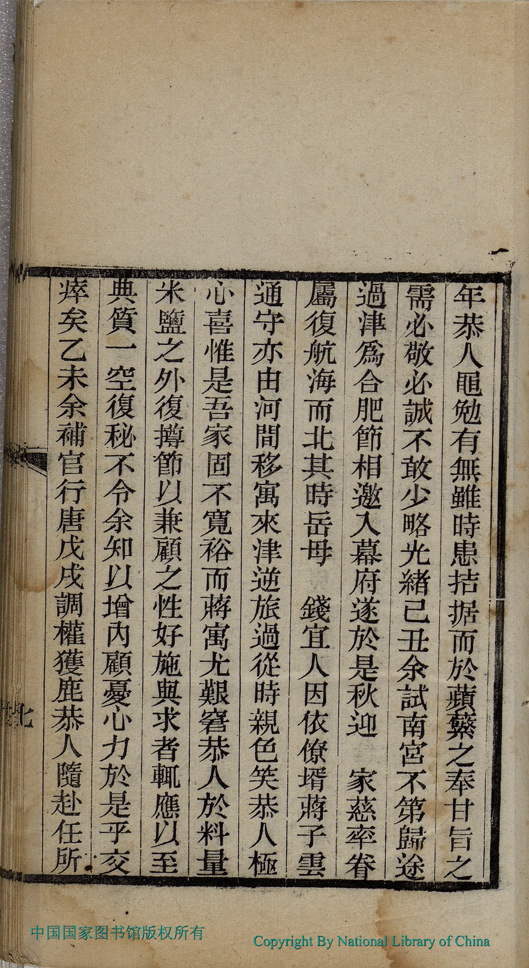 年恭人黽勉有無雖時患拮据而於蘋蘩之奉甘旨之
需必敬必誠不敢少略光緒己丑余試南宮不第歸途
過津爲合肥節相邀入幕府遂於是秋迎　家慈率眷
屬復航海而北其時岳母　錢宜人因依僚壻蔣子雲
通守亦由河間移寓來津逆旅過從時親色笑恭人極
心喜惟是吾家固不寬裕而蔣寓尤艱窘恭人於料量
米鹽之外復撙節以兼顧之性好施與求者輒應以至
典質一空復秘不令余知以增內顧憂心力於是乎交
瘁矣乙未余補官行唐戊戌調權獲鹿恭人隨赴任所
中国国家图书馆版权所有
Copyright By National Library of China